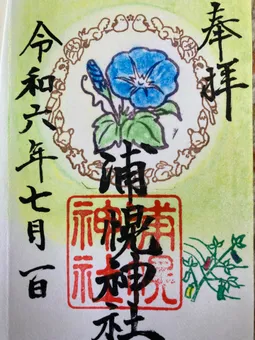 奉拝
浦幌神社
浦幌神社
令和六年七月一日